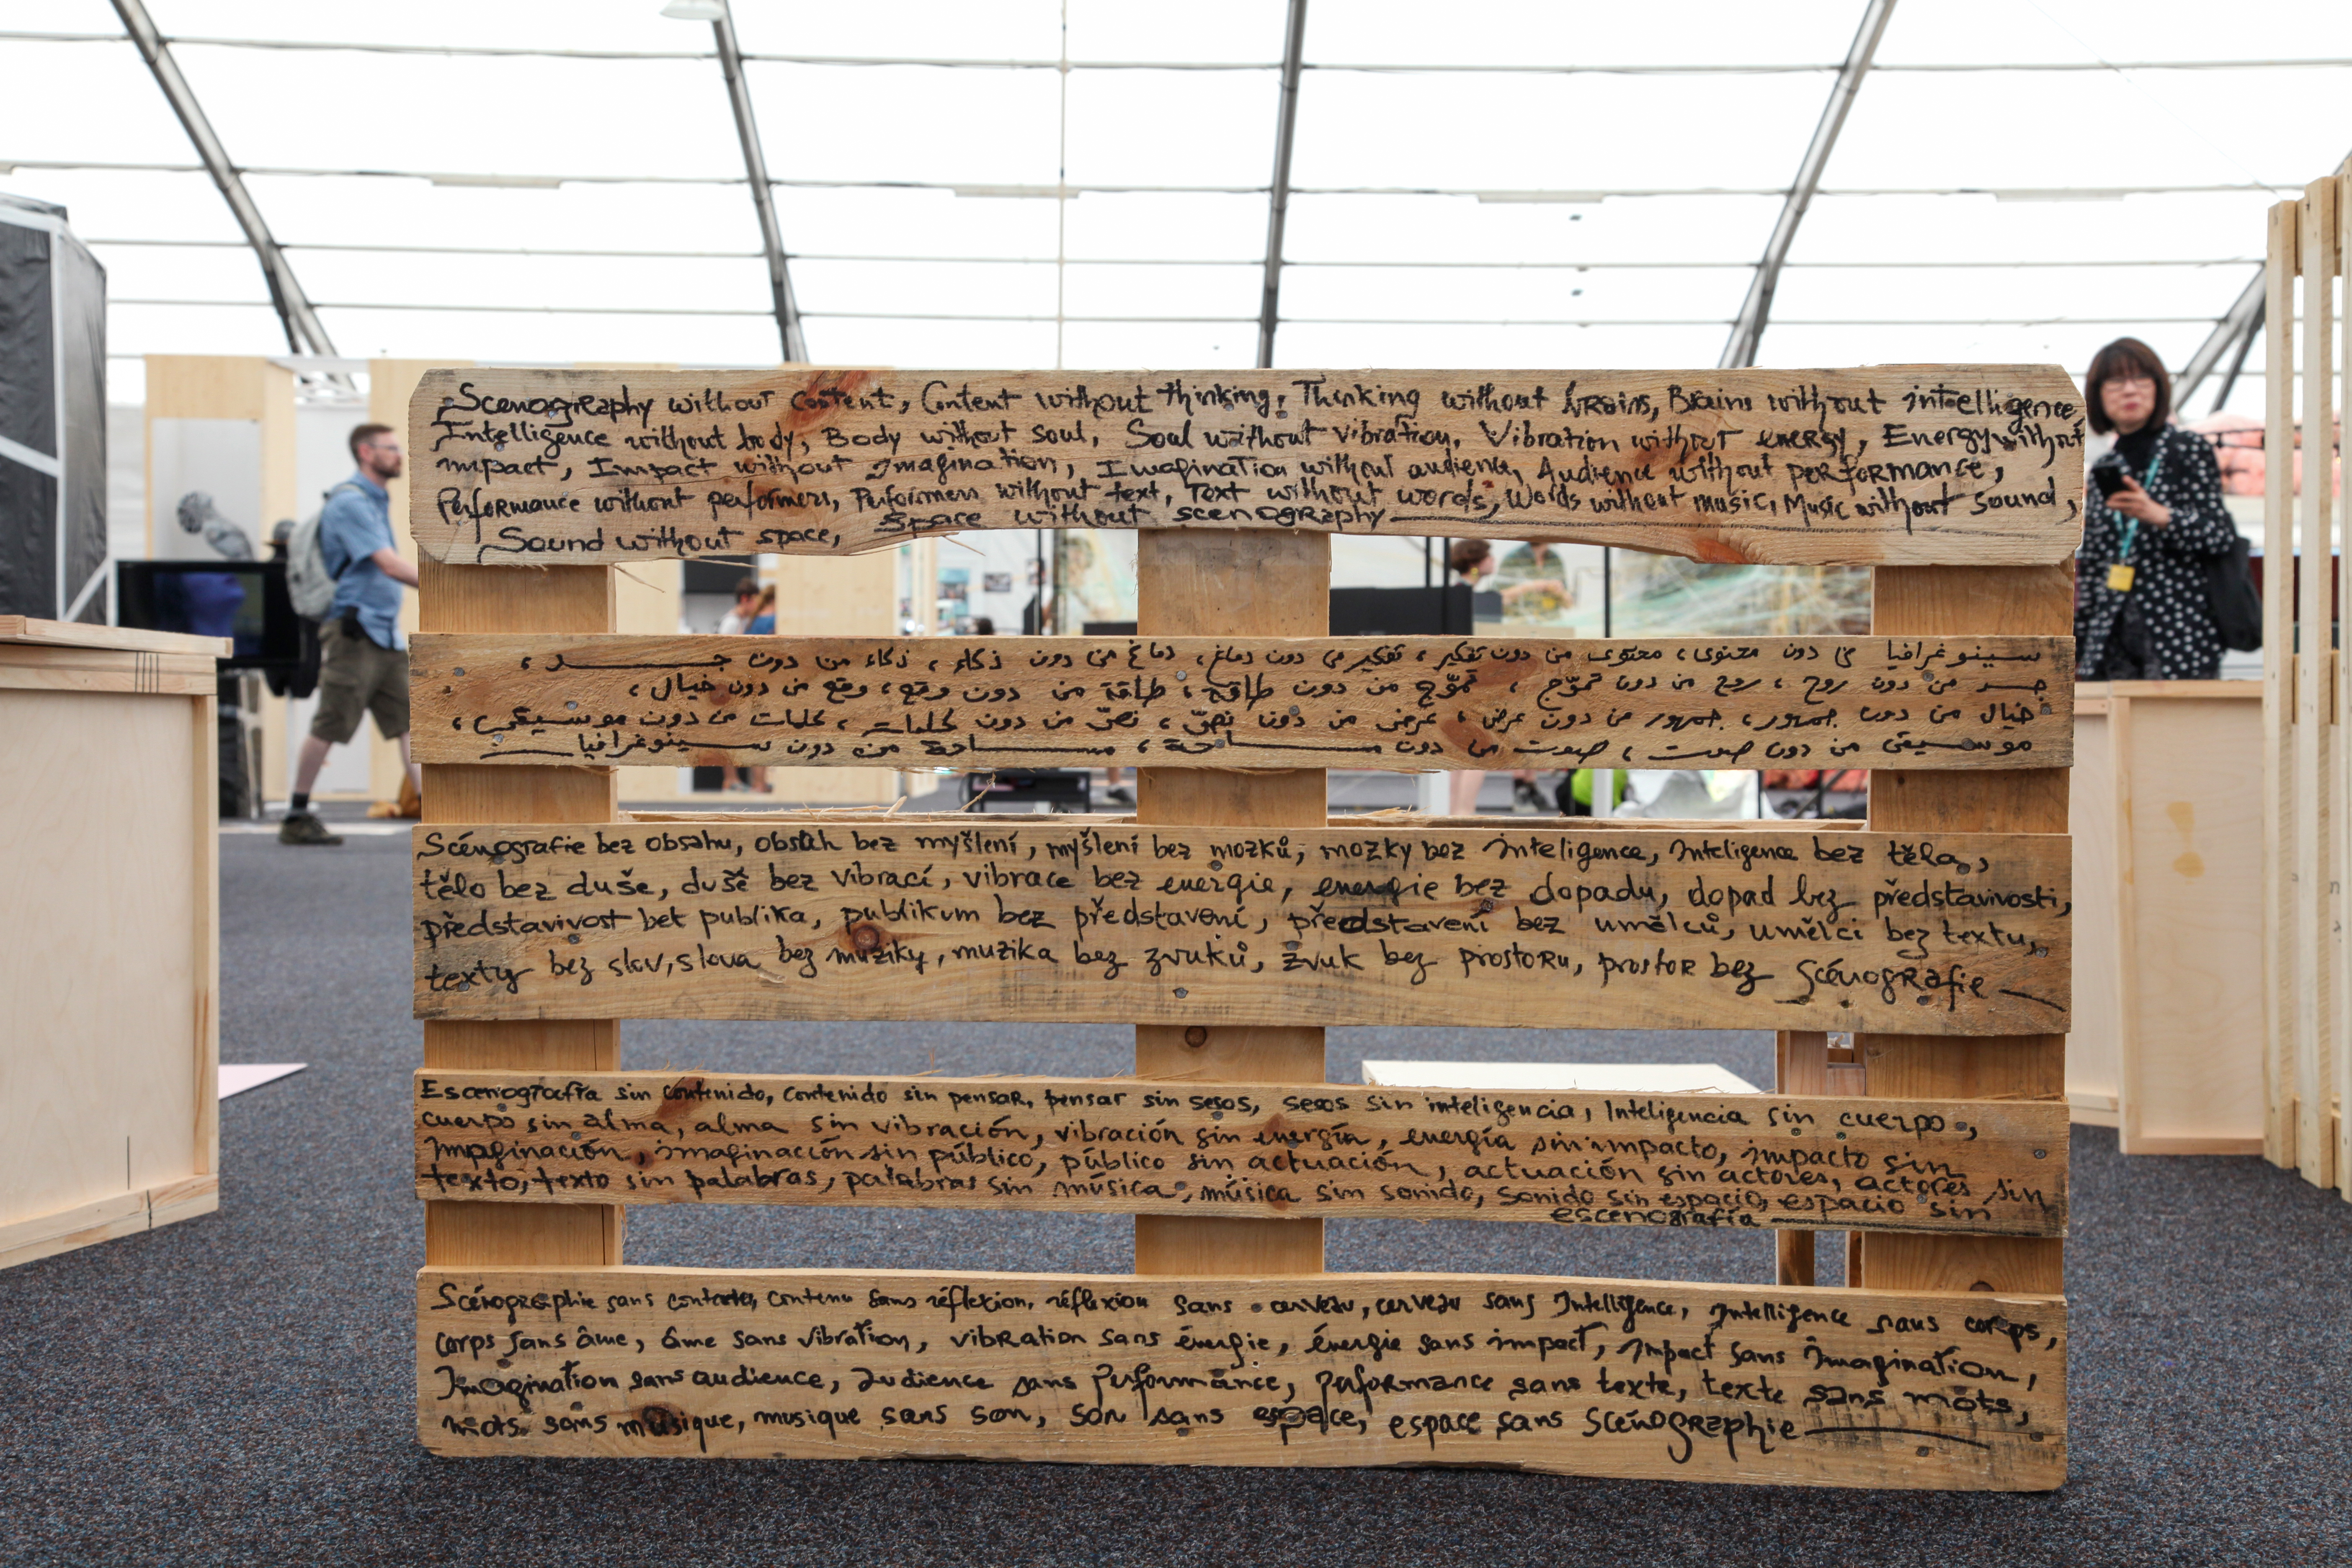 Scenography without content, Content without thinking, Thinking without brains, Brains without intelligence,
Intelligence without body, Body without soul, Soul without vibration, Vibration without energy, Energy without
impact, Impact without Imagination, Imagination without audience, Audience without performance,
Performance without performers, Performers without text, Text without words, Words without music, Music without sound,
Sound without space, Space without scenography
سينوغرافيا من دون محتوى، محتوى من دون تفكير، تفكير من دون دماغ، دماغ من دون ذكاء، ذكاء من دون جسد،
جسد من دون روح، روح من دون تموّج، تموّج من دون طاقة، طاقة من دون وقع، وقع من دون خيال،
خيال من دون جمهور، جمهور من دون عرض، عرض من دون نصّ، نصّ من دون كلمات، كلمات من دون موسيقى،
موسيقى من دون صوت، صوت من دون مساحة، مساحة من دون سينوغرافيا
Scénografie bez obsahu, obsah bez myšlení, myšlení bez mozků, mozky bez inteligence, Inteligence bez těla,
tělo bez duše, duše bez vibrací, vibrace bez energie, energie bez dopadu, dopad bez představivosti,
představivost bet publika, publikum bez představení, představení bez umělců, umělci bez textu,
texty bez slov, slova bez muziky, muzika bez zvuků, zvuk bez prostoru, prostor bez scénografie
Escenografía sin contenido, contenido sin pensar, pensar sin sesos, sesos sin inteligencia, Inteligencia sin cuerpo,
cuerpo sin alma, alma sin vibración, vibración sin energía, energía sin impacto, impacto sin
Imaginación, imaginación sin público, público sin actuación, actuación sin actores, actores sin
texto, texto sin palabras, palabras sin música, música sin sonido, sonido sin espacio, espacio sin
escenografía
Scénographie sans contenu, contenu sans réflexion, réflexion sans cerveau, cerveau sans Intelligence, Intelligence sans corps,
corps sans âme, âme sans vibration, vibration sans énergie, énergie sans impact, Impact sans Imagination,
Imagination sans audience, audience sans performance, performance sans texte, texte sans mots,
mots sans musique, musique sans son, son sans espace, espace sans scénographie